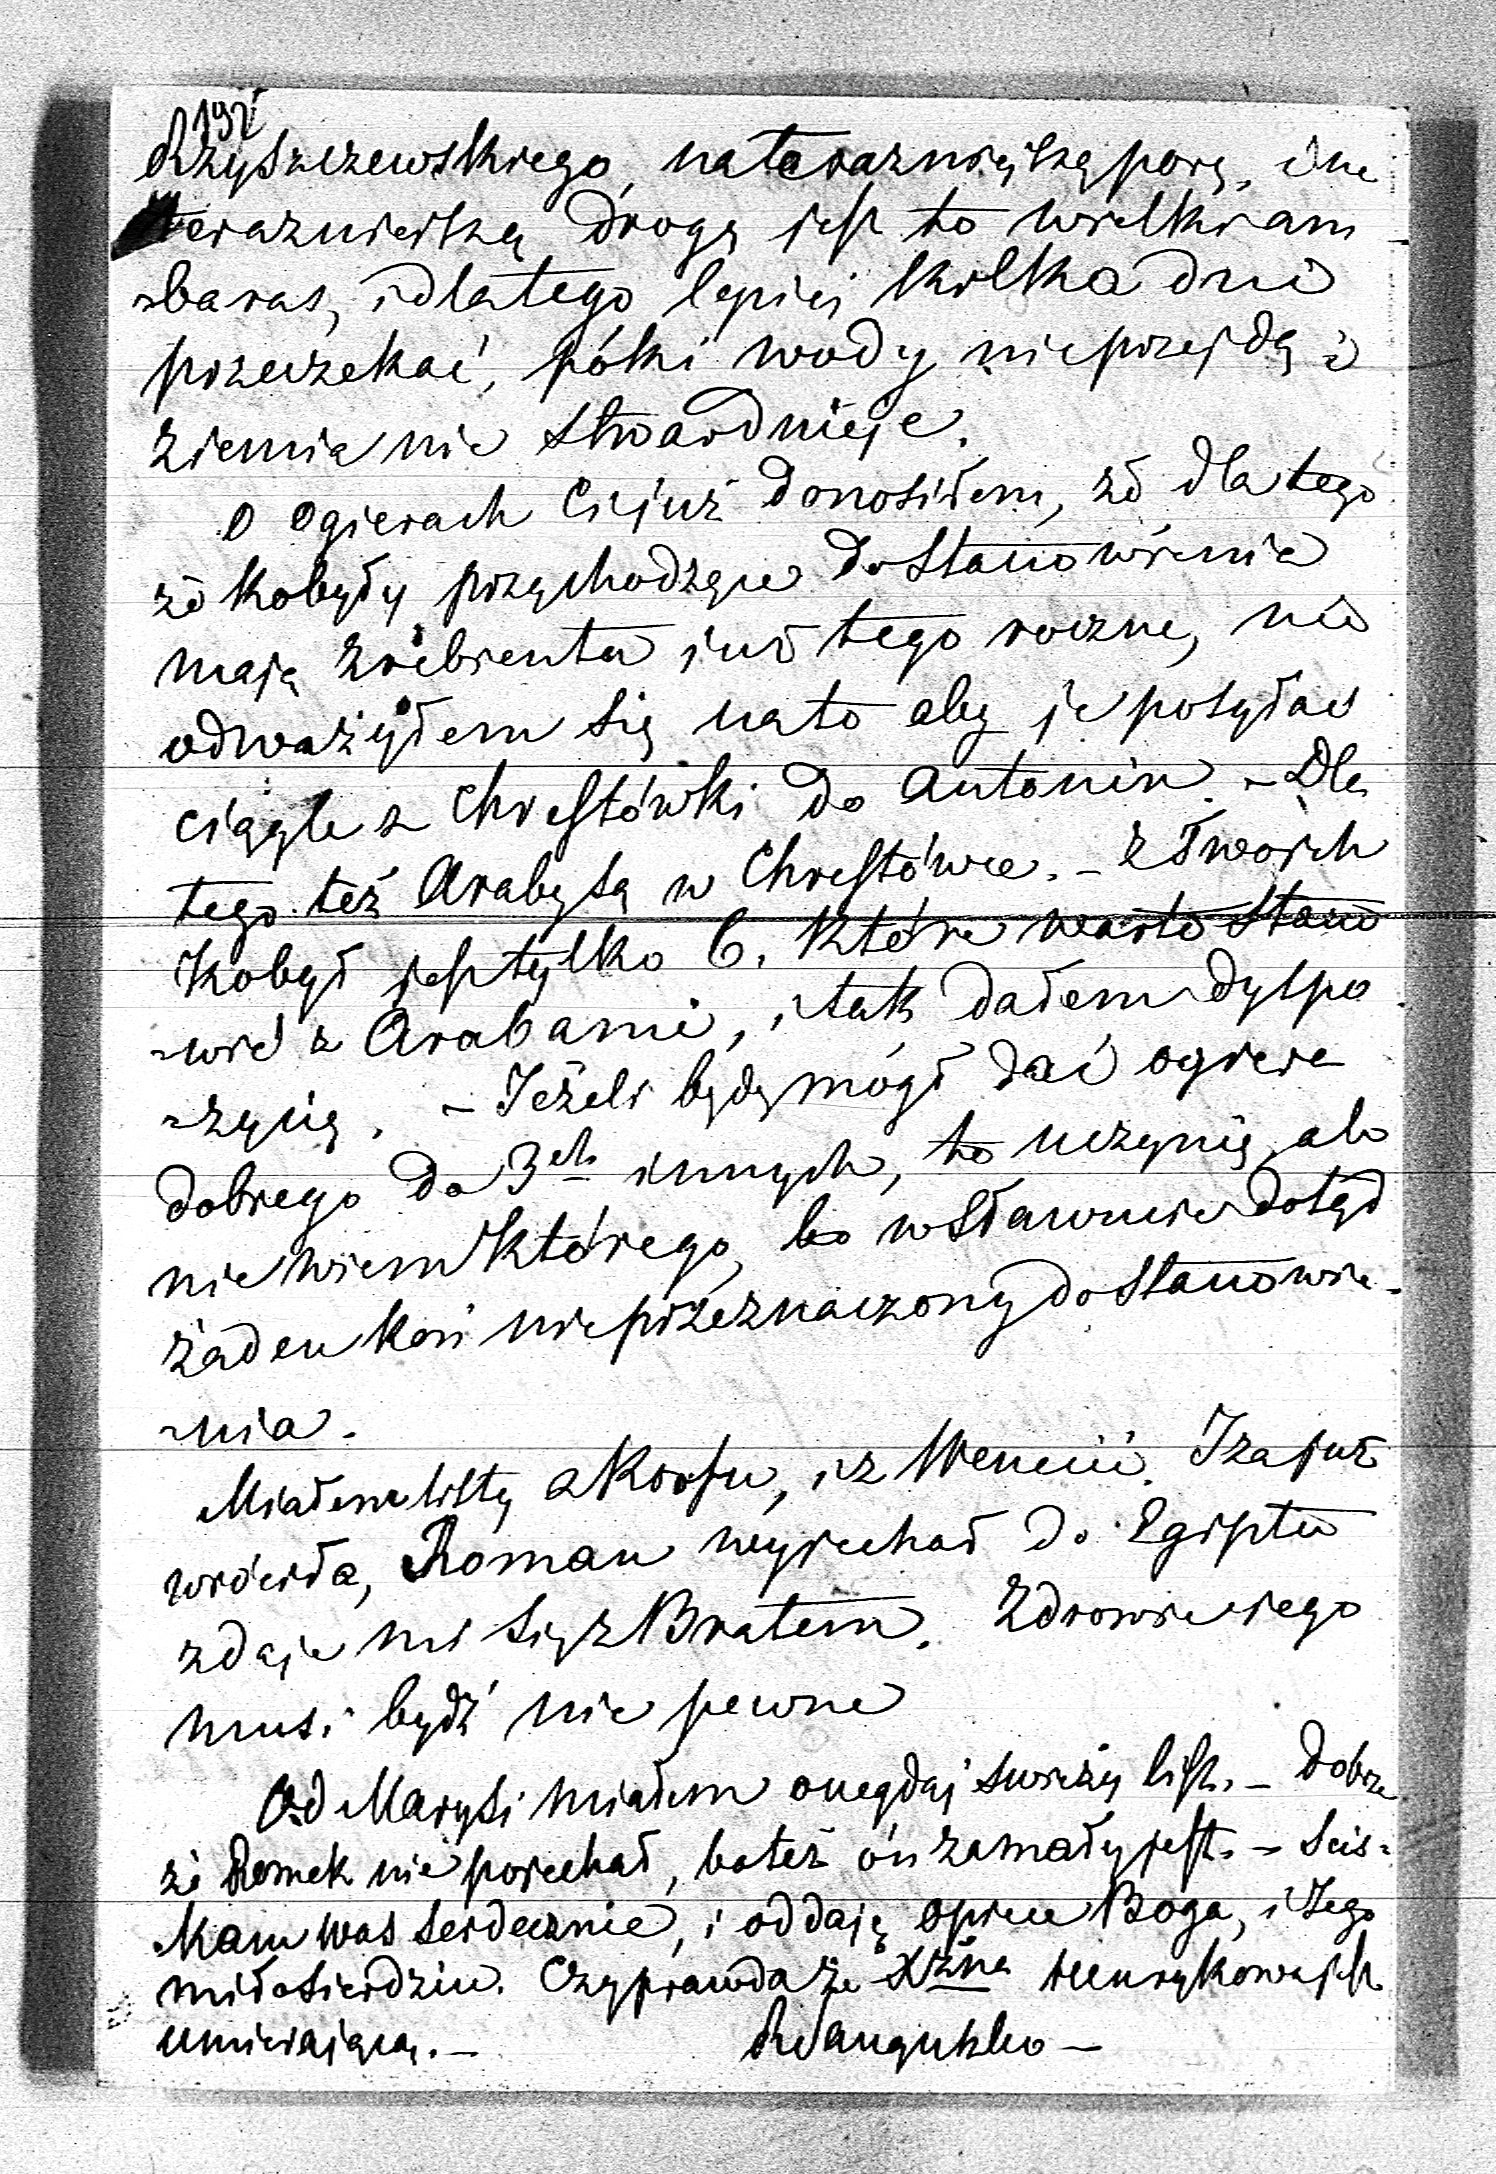 192
Rzyszczewskiego, na teraznięszą porę, i na
teraznieiszą drogę jest to wielki am-
-baras, i dlatego lepiej kilka dni
przeczekać, póki wody nieprzejdą i
ziemia nie stwardnieje.
O Ogierach Ci już donosiłem, żè dla tego
żè Kobyły przychodzące do Stanowienia
mają zrebienta już tego roczne, nie
odważyłem się nato aby je posyłać
ciągle z Chrestówki do Antonin. – Dla
tego też Araby są w Chrestówce. – z Twoich
Kobył jest tylko 6. które warto Stano
-wić z Arabami, i tak dałem dyspo
-zycię. – Jeżeli będę mógł dać ogiera
dobrego do 3ch innych, to uczynię, ale
nie wiem którego, bo w Sławucie dotąd
żaden koń nie przeznaczony do Stanowie-
-nia.
Miałem listy z Korfu, i z Wenecii. Iza już
wróciła, Roman wyjechał do Egiptu
zdaje mi się z Bratem. Zdrowie jego
musi bydź nie pewne
Od Marysi miałem onegdaj swieży list. – Dobrze
żè Romek nie pojechał, bo też ón zamały jest. – Scis-
kam was serdecznie, i oddaję opiece Boga, i Jego
miłosierdziu. Czy prawda że Xżna Henrykowa jest
umierającą. – RSanguszko –